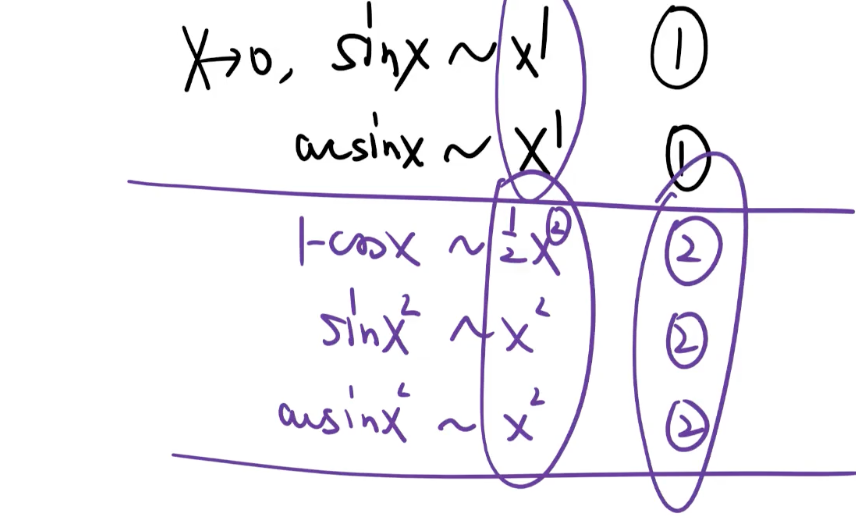 x→0, sinx ~ x¹ ①
arcsinx ~ x¹ ①
1-cosx ~ ½x² ②
sinx² ~ x² ②
arcsinx² ~ x² ②